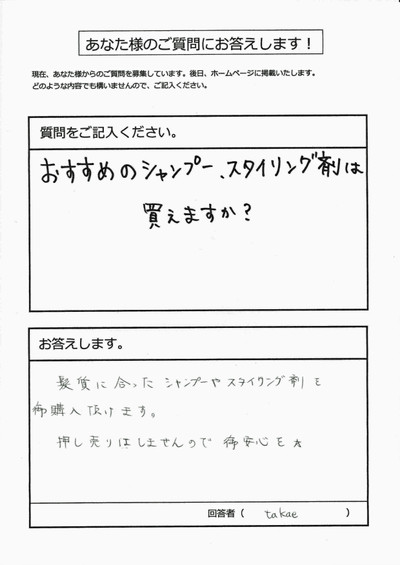 あなた様のご質問にお答えします！
現在、あなた様からのご質問を募集しています。後日、ホームページに掲載いたします。
どのような内容でも構いませんので、ご記入ください。
質問をご記入ください。
おすすめのシャンプー、スタイリング剤は
買えますか？
お答えします。
髪質に合ったシャンプーやスタイリング剤を
御購入頂けます。
押し売りはしませんので御安心を★
回答者（ takae ）